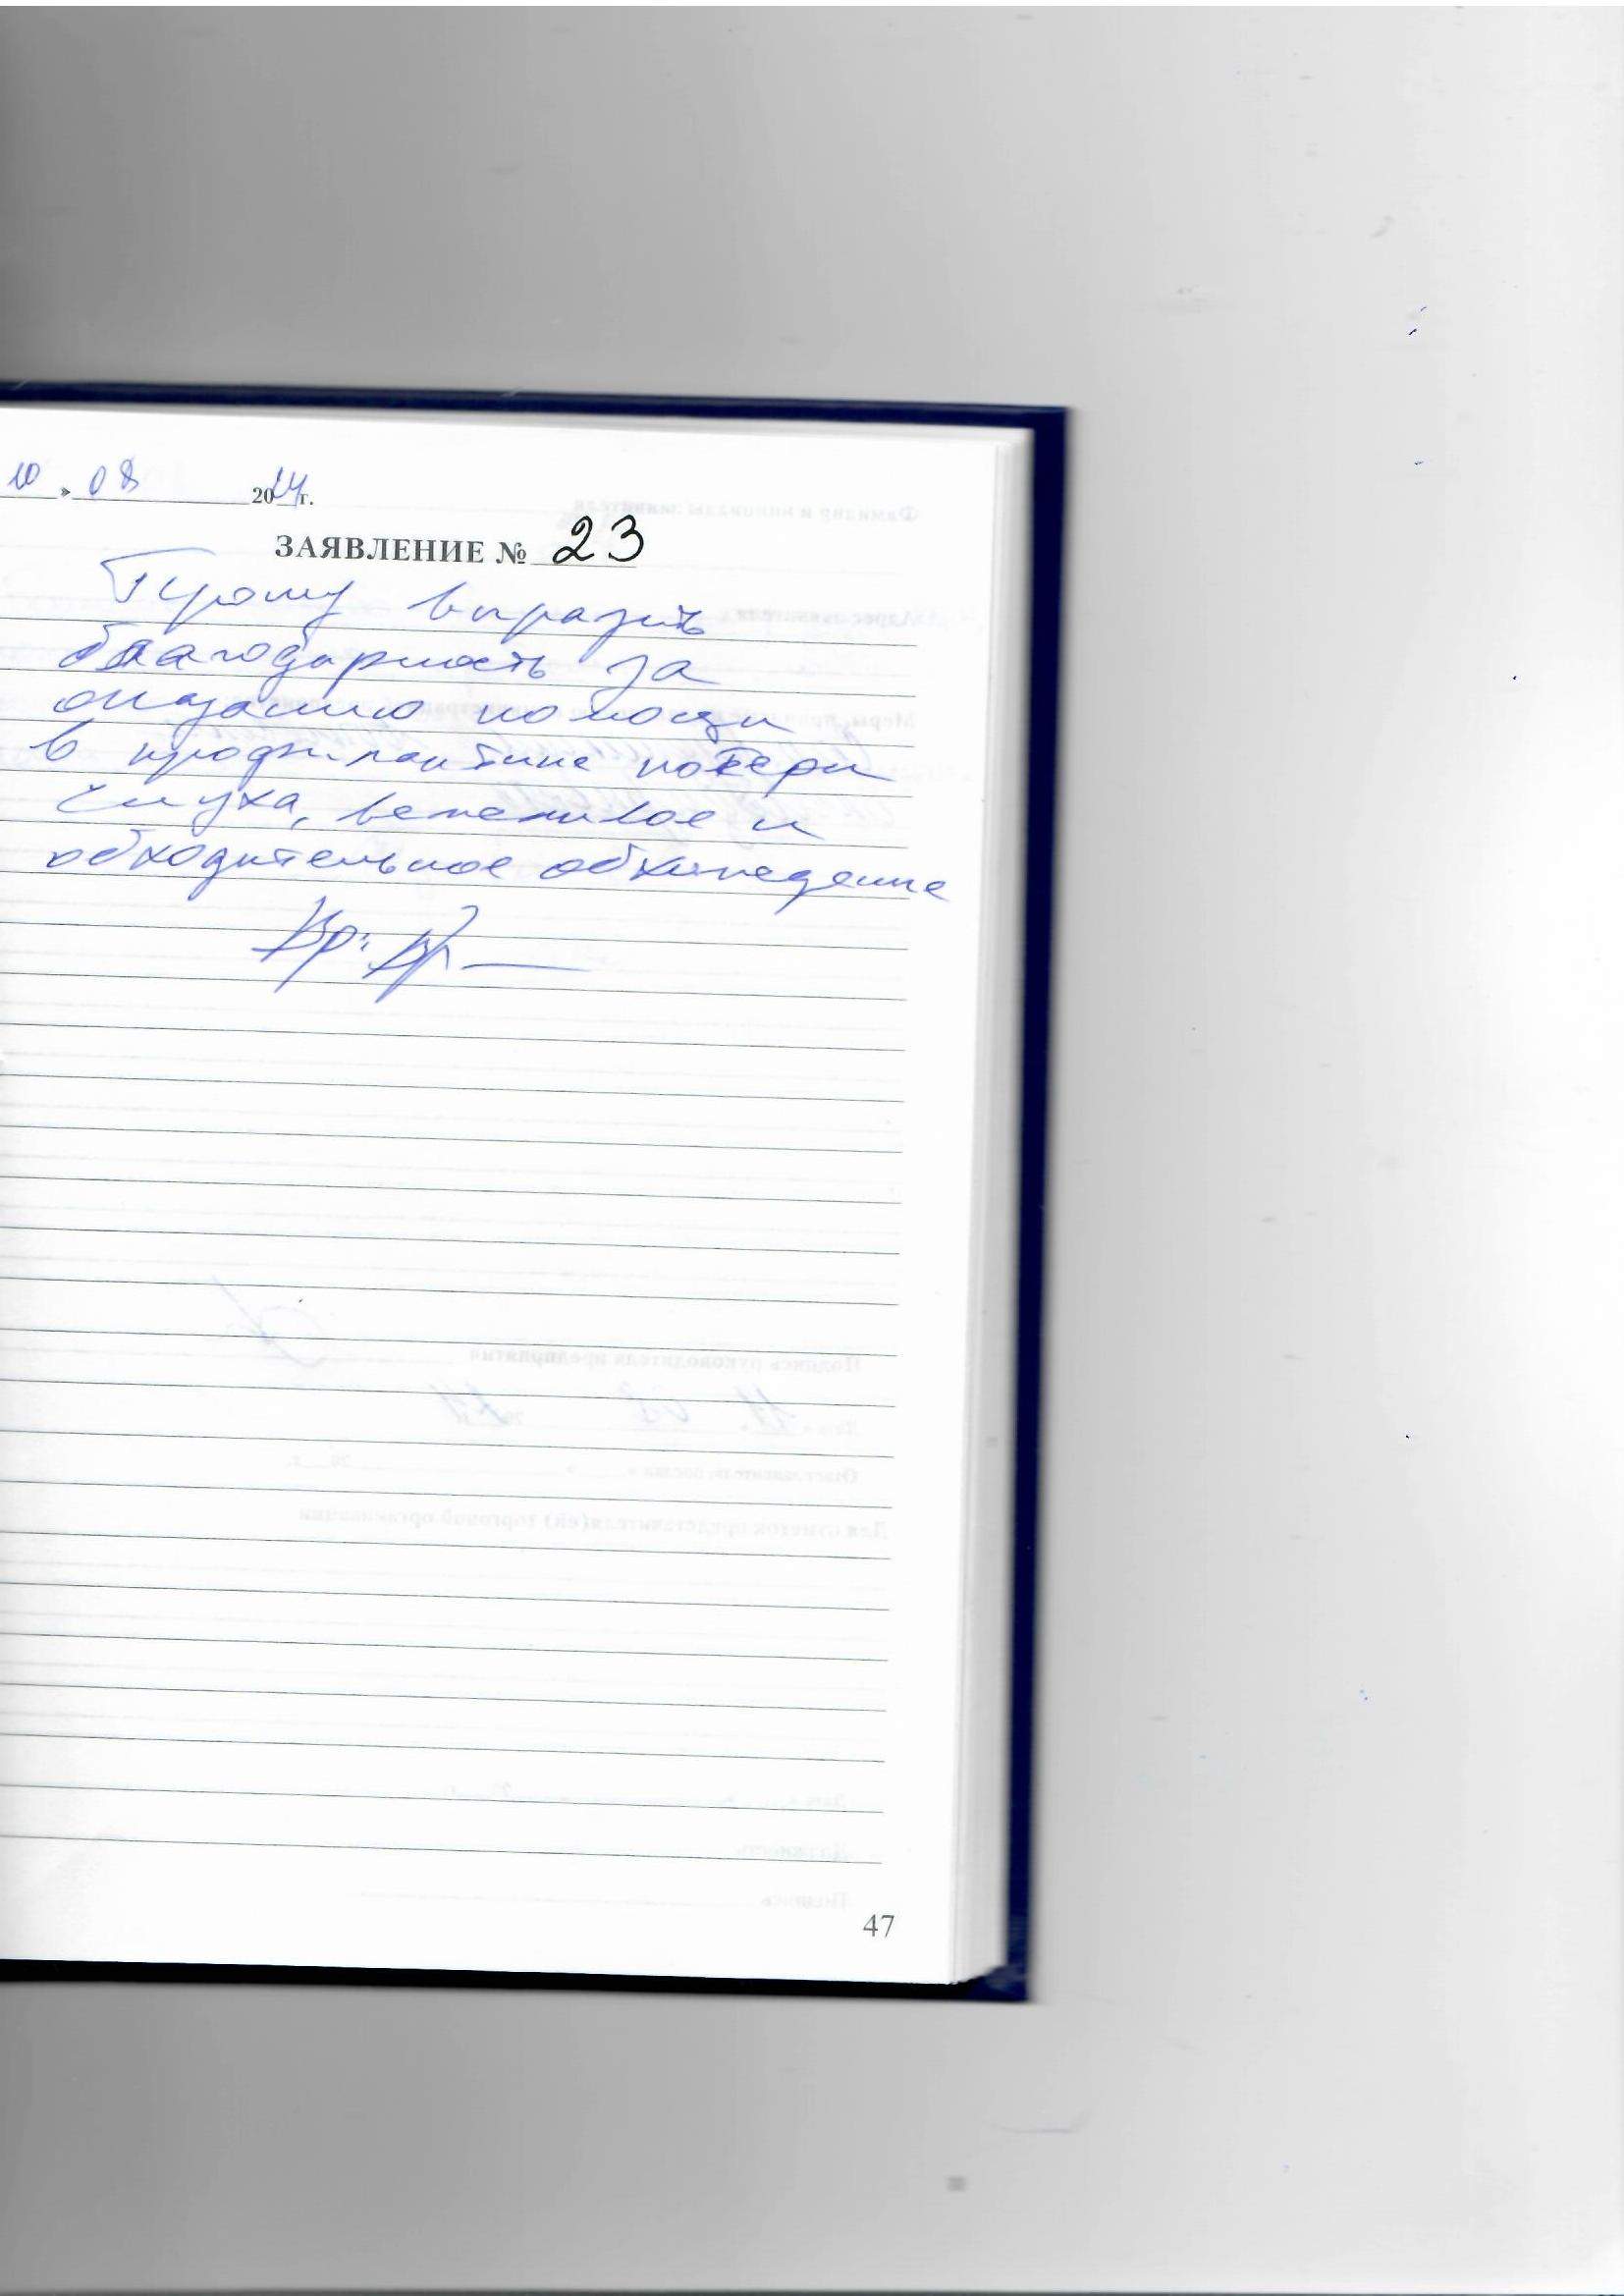 10 » 08 2024 г.
ЗАЯВЛЕНИЕ № 23
Прошу выразить
благодарность за
оказанию помощи
в профилактике потери
слуха, вежливое и
обходительное обхождение
47